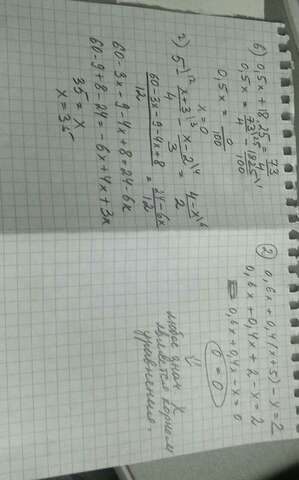 б) 0,5x + 18,25 = 73/4
0,5x = 73/4 \25 - 1825/100 \1
0,5x = 0/100
x = 0
г) 5\12 - x+3/4 \3 - x-2/3 \4 = 4-x/2 \6
60-3x-9-4x+8/12 = 24-6x/12
60-3x-9-4x+8=24-6x
60-9+8-24=-6x+4x+3x
35 = x
x = 35
② 0,6x + 0,4(x+5) - x = 2
0,6x + 0,4x + 2 - x = 2
0,6x + 0,4x - x = 0
0 = 0
любое знач x
является корнем
уравнения.